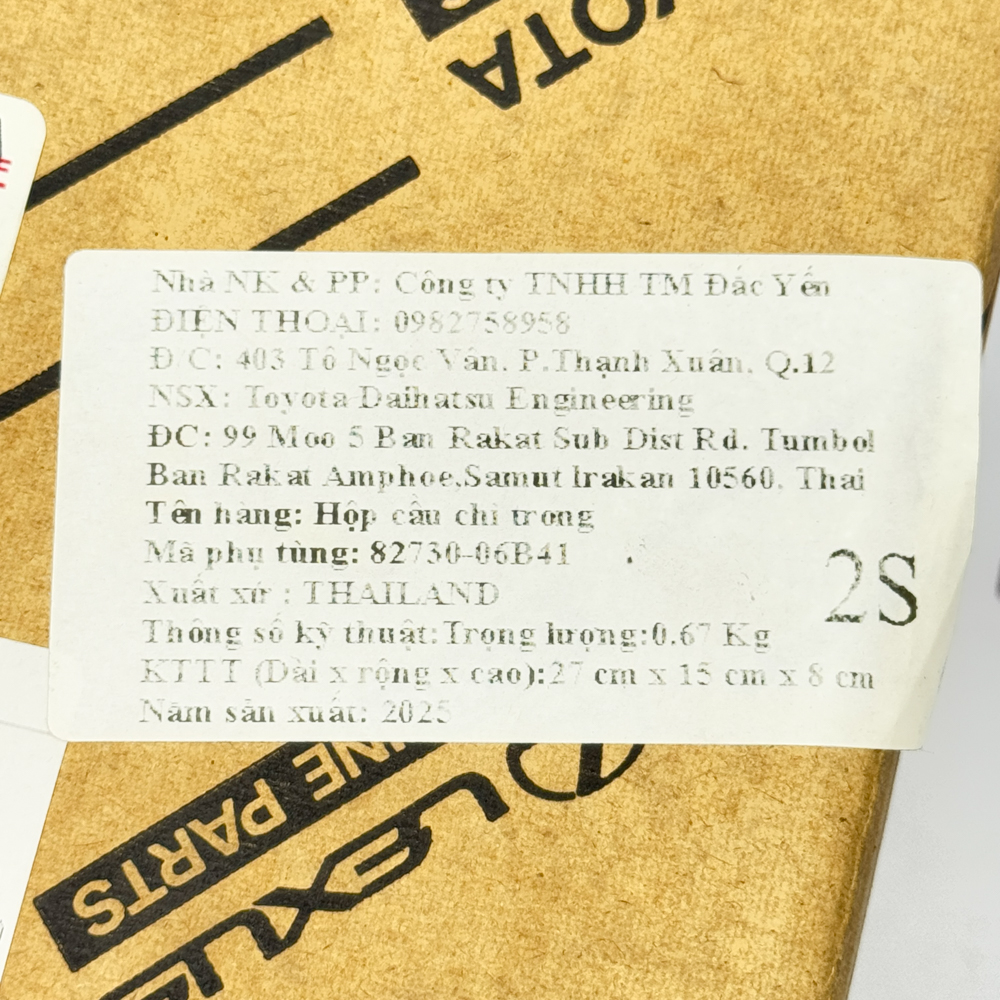 YOTA
Nhà NK & PP: Công ty TNHH TM Đắc Yến
ĐIỆN THOẠI: 0982758958
Đ/C: 403 Tô Ngọc Vân, P.Thạnh Xuân, Q.12
NSX: Toyota Daihatsu Engineering
ĐC: 99 Moo 5 Ban Rakat Sub Dist Rd. Tumbol
Ban Rakat Amphoe,Samut Irakan 10560. Thai
Tên hàng: Hộp cầu chì trong
Mã phụ tùng: 82730-06B41
Xuất xứ : THAILAND
2S
Thông số kỹ thuật:Trọng lượng:0.67 Kg
KTTT (Dài x rộng x cao):27 cm x 15 cm x 8 cm
Năm sản xuất: 2025
INE PARTS
LEXU